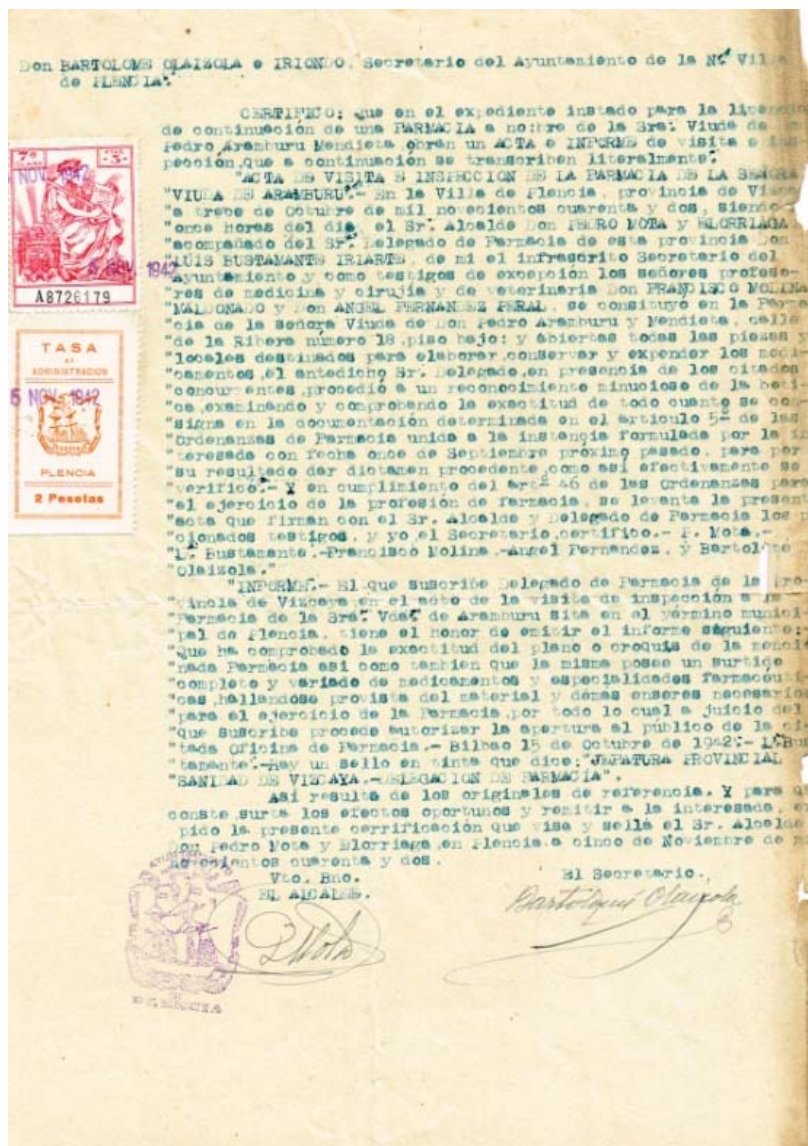 Don BARTOLOME OLAIZOLA e IRIONDO, Secretario del Ayuntamiento de la Nª Villa
de PLENCIA.
CERTIFICO: Que en el expediente instado para la licencia
de continuación de una FARMACIA a nombre de la Sra. Viuda de
Pedro Aramburu Mendieta, obran un ACTA e INFORME de visita e ins
pección,que a continuación se transcriben literalmente:
"ACTA DE VISITA E INSPECCION DE LA FARMACIA DE LA SEÑORA
"VIUDA DE ARAMBURU".- En la Villa de Plencia, provincia de Vizca
"a trece de Octubre de mil novecientos cuarenta y dos, siendo
"once horas del día, el Sr. Alcalde Don PEDRO MOTA y ELORRIAGA
"acompañado del Sr. Delegado de Farmacia de esta provincia Don
"LUIS BUSTAMANTE IRIARTE, de mi el infrascrito Secretario del
"Ayuntamiento y como testigos de excepción los señores profeso-
"res de medicina y cirujía y de veterinaria Don FRANCISCO MOLINA
"MALDONADO y Don ANGEL FERNANDEZ PERAL, se constituyó en la Farma
"cia de la señora Viuda de Don Pedro Aramburu y Mendieta, calle
"de la Ribera número 18,piso bajo; y abiertas todas las piezas y
"locales destinados para elaborar,conservar y expender los medi
"camentos,el antedicho Sr. Delegado,en presencia de los citados
"concurrentes,procedió a un reconocimiento minucioso de la boti
"ca,examinando y comprobando la exactitud de todo cuanto se con-
"signa en la documentación determinada en el artículo 5º de las
"Ordenanzas de Farmacia unida a la instancia formulada por la in
"teresada con fecha once de Septiembre próximo pasado, para por
"su resultado dar dictamen procedente,como así efectivamente se
"verificó.- Y en cumplimiento del artº 46 de las Ordenanzas para
"el ejercicio de la profesión de farmacia, se levanta la present
"acta que firman con el Sr. Alcalde y Delegado de Farmacia los m
"cionados testigos, y yo,el Secretario,certifico.- P. Mota.-
"L. Bustamante.-Francisco Molina.-Angel Fernandez, y Bartolomé
"Olaizola."
"INFORME.- El que suscribe Delegado de Farmacia de la Pro
"vincia de Vizcaya,en el acto de la visita de inspección a la
"Farmacia de la Sra. Vda. de Aramburu sita en el término munici-
"pal de Plencia, tiene el honor de emitir el informe siguiente:-
"Que ha comprobado la exactitud del plano o croquis de la mencio
"nada Farmacia así como tambien que la misma posee un surtido
"completo y variado de medicamentos y especialidades farmacéuti-
"cas,hallandose provista del material y demas enseres necesario
"para el ejercicio de la Farmacia,por todo lo cual a juicio del
"que suscribe procede autorizar la apertura al público de la ci-
"tada Oficina de Farmacia.- Bilbao 15 de Octubre de 1942.- L.Bus
"tamante.-Hay un sello en tinta que dice:"JEFATURA PROVINCIAL
"SANIDAD DE VIZCAYA.-DELEGACION DE FARMACIA".
Así resulta de los originales de referencia. Y para q
conste,surta los efectos oportunos y remitir a la interesada, ex
pido la presente cerrificación que visa y sella el Sr. Alcalde
Don Pedro Mota y Elorriaga,en Plencia,a cinco de Noviembre de m
novecientos cuarenta y dos.
Vto. Bno.
EL ALCALDE.
El Secretario.,
P Mota
Bartolomé Olaizola
7ª
3
NOV. 1942
NOV. 1942
A8726179
TASA
DE
ADMINISTRACION
5 NOV. 1942
PLENCIA
2 Pesetas
AYUNTAMIENTO
DE PLENCIA